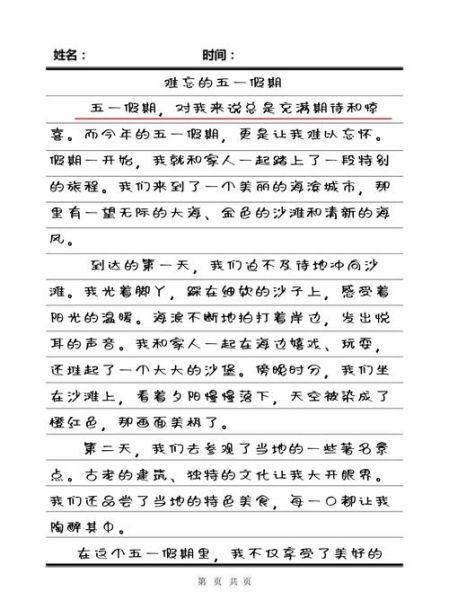 姓名： 时间：
难忘的五一假期
五一假期，对我来说总是充满期待和惊
喜。而今年的五一假期，更是让我难以忘怀。
假期一开始，我就和家人一起踏上了一段特别
的旅程。我们来到了一个美丽的海滨城市，那
里有一望无际的大海、金色的沙滩和清新的海
风。
到达的第一天，我们迫不及待地冲向沙
滩。我光着脚丫，踩在细软的沙子上，感受着
阳光的温暖。海浪不断地拍打着岸边，发出悦
耳的声音。我和家人一起在海边嬉戏、玩耍，
还堆起了一个大大的沙堡。傍晚时分，我们坐
在沙滩上，看着夕阳慢慢落下，天空被染成了
橙红色，那画面美极了。
第二天，我们去参观了当地的一些著名景
点。古老的建筑、独特的文化让我大开眼界。
我们还品尝了当地的特色美食，每一口都让我
陶醉其中。
在这个五一假期里，我不仅享受了美好的
第 页 共 页